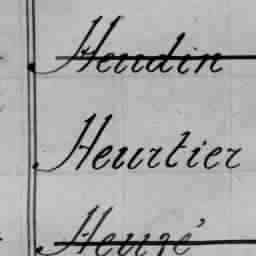 Heudin
Heurtier
Heuzé